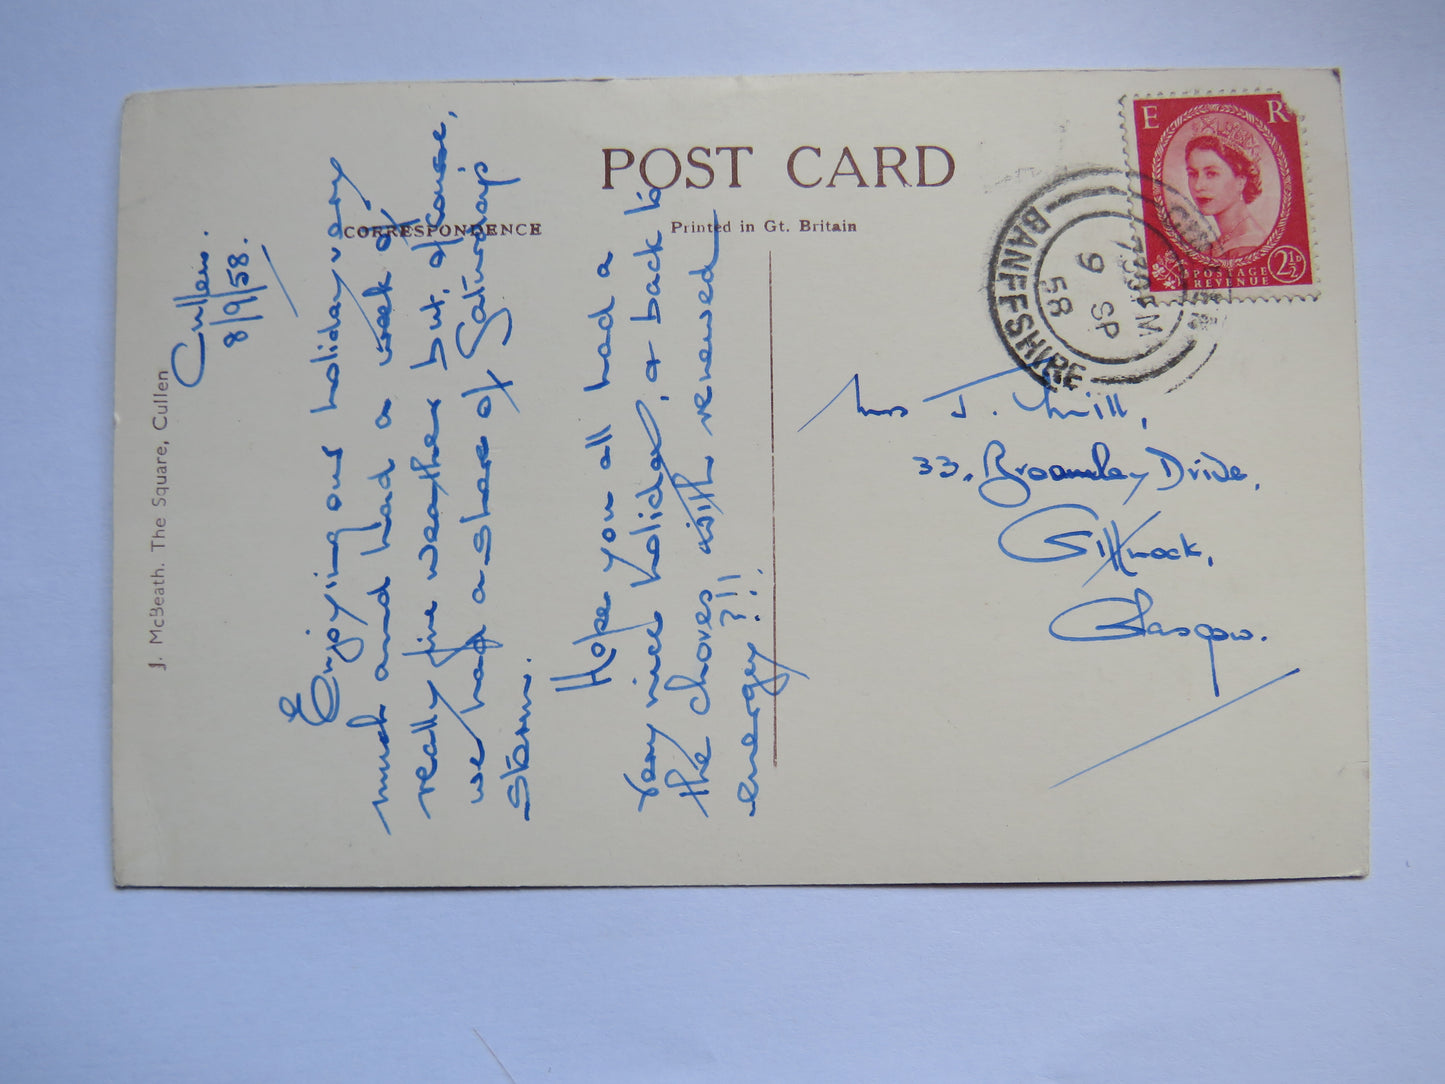 POST CARD
CORRESPONDENCE
Printed in Gt. Britain
J. McBeath. The Square, Cullen
E R
POSTAGE
REVENUE
2½D
BANFFSHIRE
9 SP
58
Cullen.
8/9/58.
Enjoying our holiday very
much and had a week of
really fine weather but, of course,
we had a share of Saturday's
storm.
Hope you all had a
very nice holiday, & back to
the chores with renewed
energy?!!
Mrs J. Mill,
33, Broomley Drive,
Giffnock,
Glasgow.